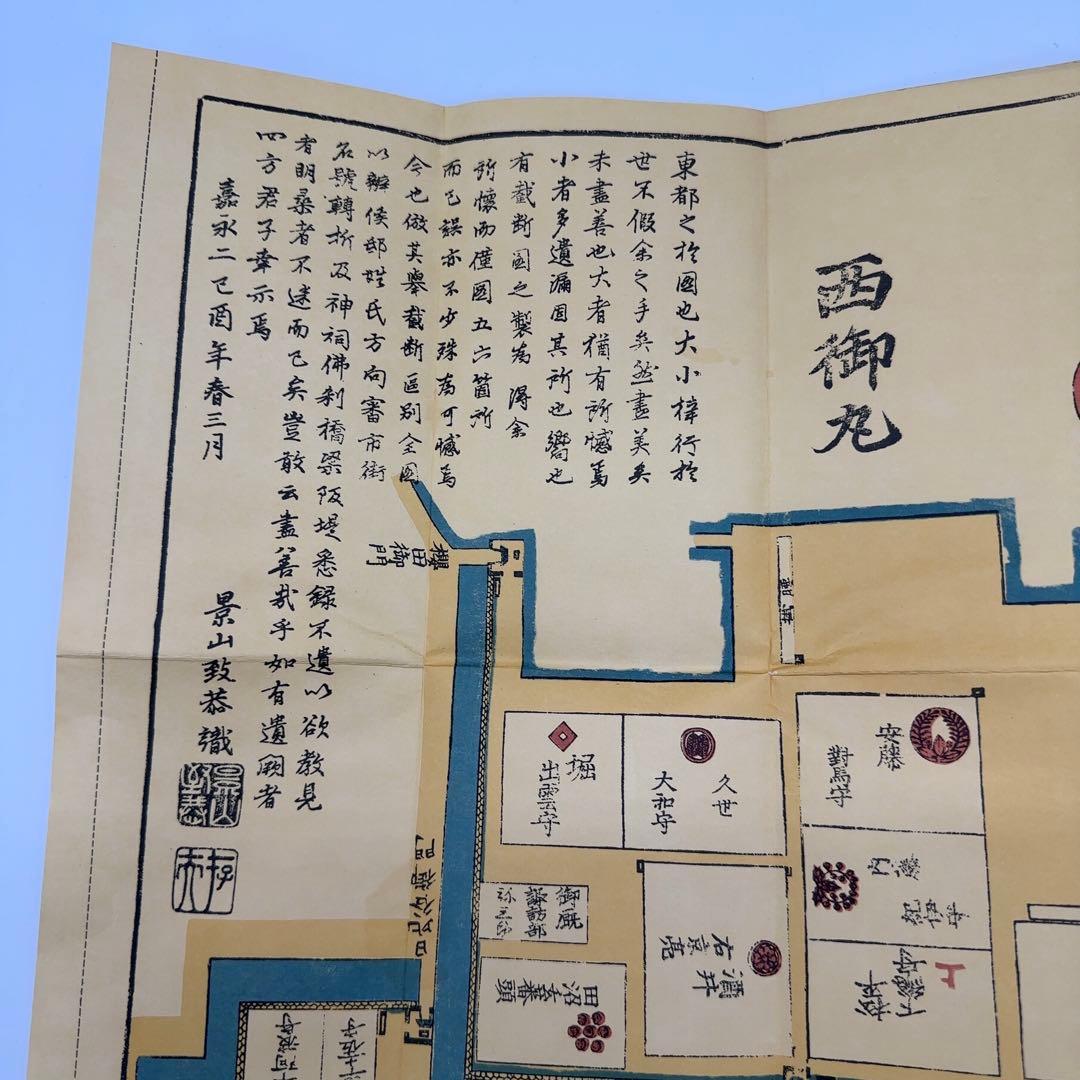 西御丸
東都之於圖也大小梓行於
世不假余之手矣然盡美矣
未盡善也大者猶有所憾焉
小者多遺漏固其所也嚮也
有截断圖之製為得余
所懷而僅圖五六箇所
而已誤亦不少殊為可憾焉
今也倣其舉截断區別全圖
以辨侯邸姓氏方向審市街
名號轉折及神祠佛刹橋梁阪堤悉録不遺以欲教見
者明桑者不迷而已矣豈敢云盡善哉乎如有遺厥者
四方君子幸示焉
嘉永二己酉年春三月
景山致恭識
櫻田御門
安藤
對馬守
久世
大和守
堀
出雲守
内藤
紀伊守
上
酒井
右京亮
御厩
諏訪部
田沼
日比谷御門